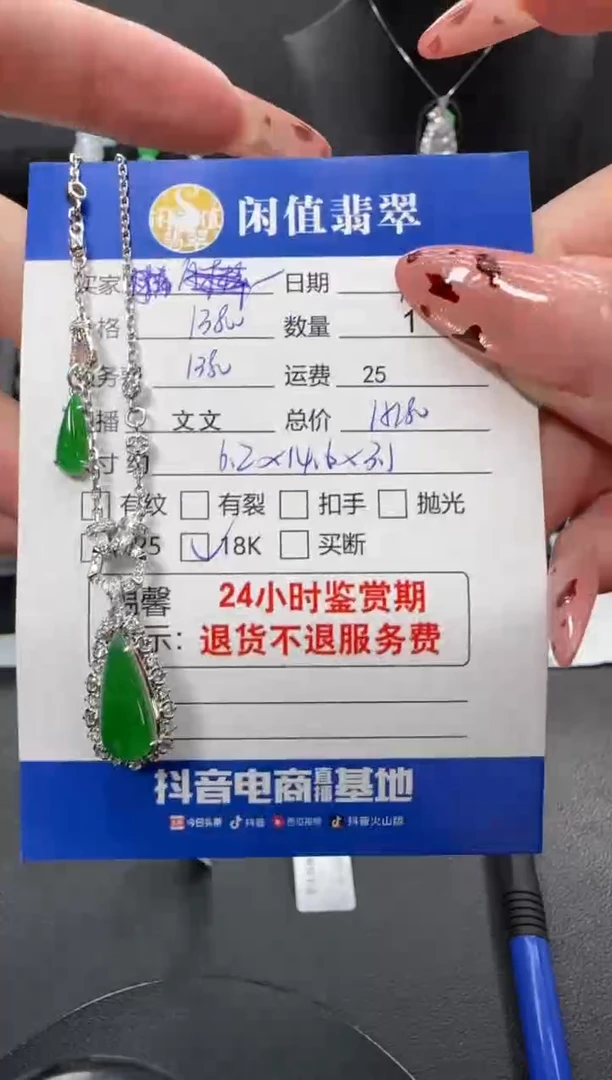 闲值翡翠
买家 日期
格 13800 数量 1
务费 1380 运费 25
播 文文 总价
寸 约 6.2×14.6×3.1
有纹 有裂 扣手 抛光
925 18K 买断
温馨 24小时鉴赏期
示：退货不退服务费
抖音电商直播基地
今日头条 抖音 西瓜视频 抖音火山版